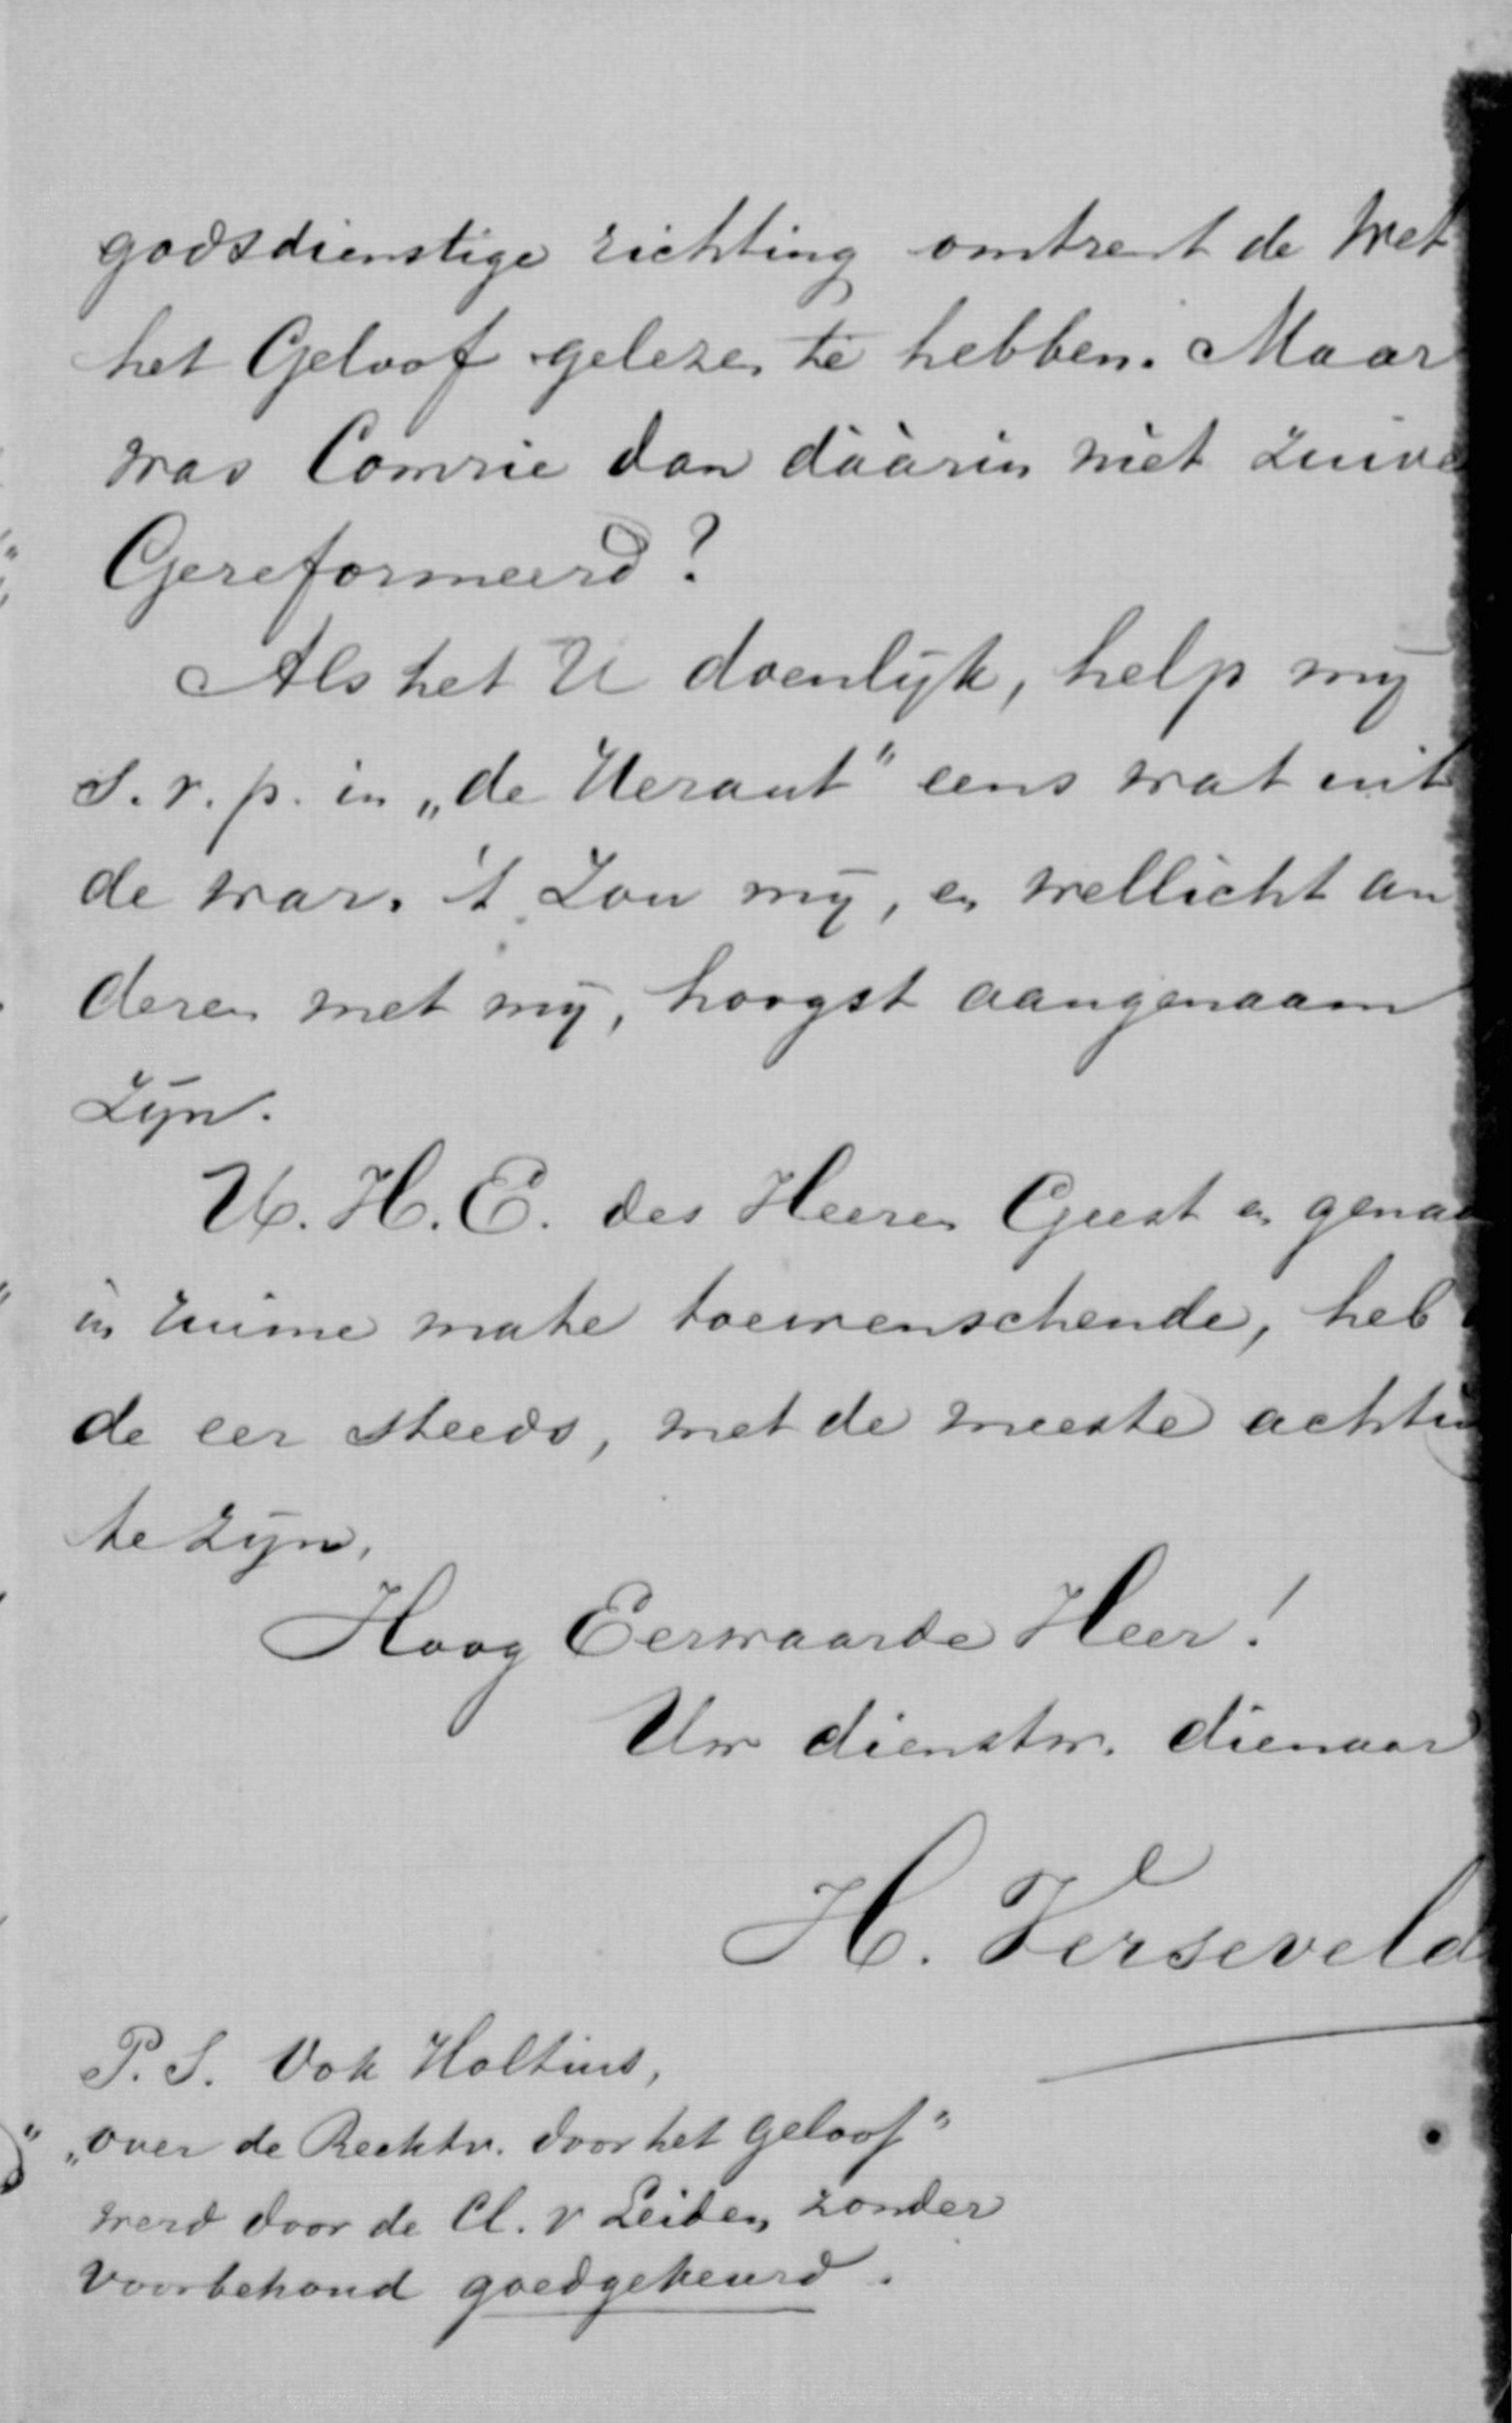 godsdienstige richting omtrent de Wet
het Geloof gelezen te hebben. Maar
was Comrie dan dààrin niet zuive
Gereformeerd?
Als het U doenlijk, help mij
S. v. p. in „de Heraut" eens wat uit
de war. 't Zou mij, en wellicht an
deren met mij, hoogst aangenaam
zijn.
U. H. E. des Heeren Geest en genad
in ruime mate toewenschende, heb
de eer steeds, met de meeste achtin
te zijn,
Hoog Eerwaarde Heer!
Uw dienstw. dienaar
H. Verseveld
P. S. Ook Holtius,
„over de Rechtv. door het geloof"
werd door de Cl. v Leiden zonder
voorbehoud goedgekeurd.